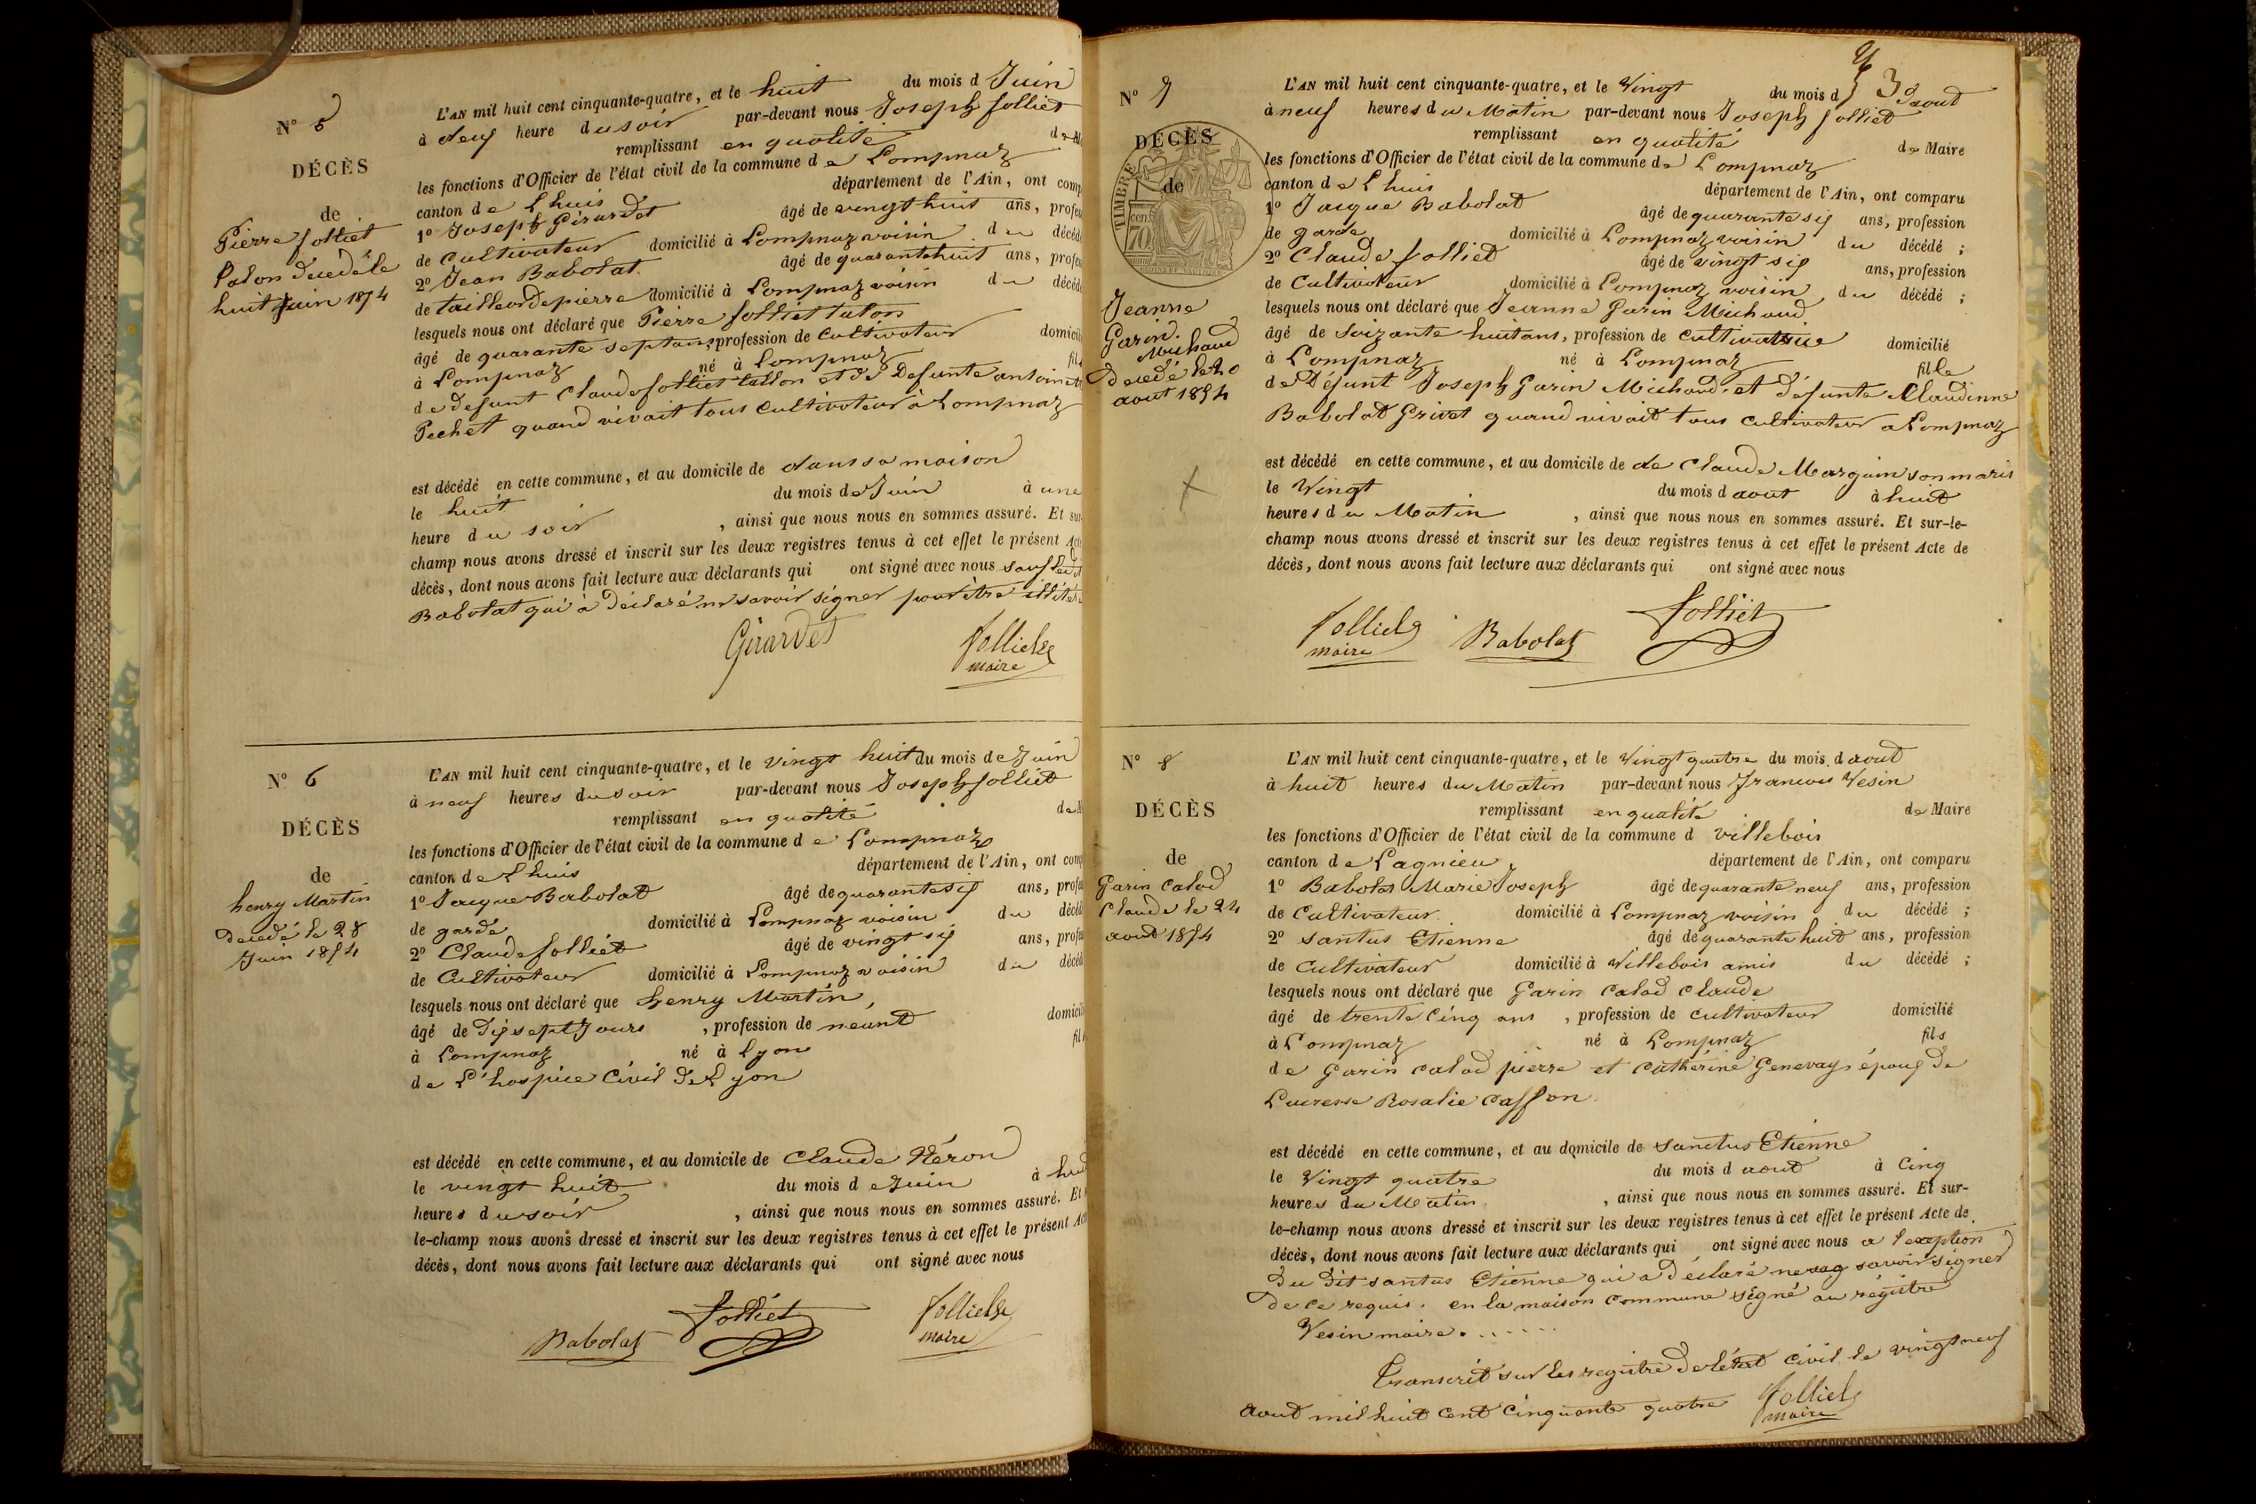 N° 5
DÉCÈS
de
Pierre folliet
talon décédé le
huit Juin 1854
L'AN mil huit cent cinquante-quatre, et le huit du mois d Juin
à neuf heure du soir par-devant nous Joseph folliet
remplissant en qualité de
les fonctions d'Officier de l'état civil de la commune de Lompnaz
canton de Lhuis département de l'Ain, ont
1° Joseph Girardet âgé de vingt huit ans,
de Cultivateur domicilié à Lompnaz voisin du
2° Jean Babolat âgé de quarante huit ans,
de tailleur de pierre domicilié à Lompnaz voisin du
lesquels nous ont déclaré que Pierre folliet talon
âgé de quarante sept ans, profession de Cultivateur
à Lompnaz né à Lompnaz
de defunt Claude folliet tallon et de Defunte
Pechet quand vivait tous Cultivateur à Lompnaz
est décédé en cette commune, et au domicile de dans sa maison
le huit du mois de Juin à une
heure du soir , ainsi que nous nous en sommes assuré. Et
champ nous avons dressé et inscrit sur les deux registres tenus à cet effet le présent
décès, dont nous avons fait lecture aux déclarants qui ont signé avec nous sauf
Babolat qui à déclaré ne savoir signer pour être
Girardet folliet
maire
N° 6
DÉCÈS
de
henry Martin
decedé le 28
Juin 1854
L'AN mil huit cent cinquante-quatre, et le vingt huit du mois de Juin
à neuf heures du soir par-devant nous Joseph folliet
remplissant en qualité de
les fonctions d'Officier de l'état civil de la commune de Lompnaz
canton de Lhuis département de l'Ain, ont
1° Jacque Babolat âgé de quarante six ans,
de garde domicilié à Lompnaz voisin du
2° Claude folliet âgé de vingt six ans,
de Cultivateur domicilié à Lompnaz voisin du
lesquels nous ont déclaré que henry Martin,
âgé de Dix sept Jours , profession de néant
à Lompnaz né à Lyon
de L'hospice Civil de Lyon
est décédé en cette commune, et au domicile de Claude Héron
le vingt huit du mois de Juin à
heures du soir , ainsi que nous nous en sommes assuré. Et
le-champ nous avons dressé et inscrit sur les deux registres tenus à cet effet le présent
décès, dont nous avons fait lecture aux déclarants qui ont signé avec nous
Babolat folliet folliet
maire
3
N° 7
DÉCÈS
de
TIMBRE
70
Jeanne
Garin
Michaud
Decedé le 20
aout 1854
L'AN mil huit cent cinquante-quatre, et le Vingt du mois d aout
à neuf heures du Matin par-devant nous Joseph folliet
remplissant en qualité de Maire
les fonctions d'Officier de l'état civil de la commune de Lompnaz
canton de Lhuis département de l'Ain, ont comparu
1° Jacque Babolat âgé de quarante six ans, profession
de garde domicilié à Lompnaz voisin du décédé ;
2° Claude folliet âgé de vingt six ans, profession
de Cultivateur domicilié à Lompnaz voisin du décédé ;
lesquels nous ont déclaré que Jeanne Garin Michaud
âgé de Soizante huit ans, profession de cultivatrice domicilié
à Lompnaz né à Lompnaz fille
de Défunt Joseph Garin Michaud et défunte Claudinne
Babolat Grivet quand vivait tous cultivateur a Lompnaz
est décédé en cette commune, et au domicile de de Claude Marguin son maris
le Vingt du mois d aout à huit
heures du Matin , ainsi que nous nous en sommes assuré. Et sur-le-
champ nous avons dressé et inscrit sur les deux registres tenus à cet effet le présent Acte de
décès, dont nous avons fait lecture aux déclarants qui ont signé avec nous
folliet Babolat folliet
maire
N° 8
DÉCÈS
de
Garin Calod
Claude le 24
aout 1854
L'AN mil huit cent cinquante-quatre, et le Vingt quatre du mois d aout
à huit heures du Matin par-devant nous francois Vesin
remplissant en qualité de Maire
les fonctions d'Officier de l'état civil de la commune d villebois
canton de Lagnieu, département de l'Ain, ont comparu
1° Babolat Marie Joseph âgé de quarante neuf ans, profession
de Cultivateur domicilié à Lompnaz voisin du décédé ;
2° santus Etienne âgé de quarante huit ans, profession
de Cultivateur domicilié à Villebois amis du décédé ;
lesquels nous ont déclaré que Garin Calod Claude
âgé de trente Cinq ans , profession de Cultivateur domicilié
à Lompnaz né à Lompnaz fils
de Garin Calod pierre et Cathérine Genevays époux de
Lucresse Rosalie Casson
est décédé en cette commune, et au domicile de sanctus Etienne
le Vingt quatre du mois d aout à Cinq
heures du Matin , ainsi que nous nous en sommes assuré. Et sur-
le-champ nous avons dressé et inscrit sur les deux registres tenus à cet effet le présent Acte de
décès, dont nous avons fait lecture aux déclarants qui ont signé avec nous a l'exeption
Du Dit santus Etienne qui a déclaré ne savoir signer
de ce requis. en la maison commune signé au régistre
Vesin maire.
Transcrit sur les registre de l'état civil le vingt neuf
aout mil huit cent Cinquante quatre folliet
maire